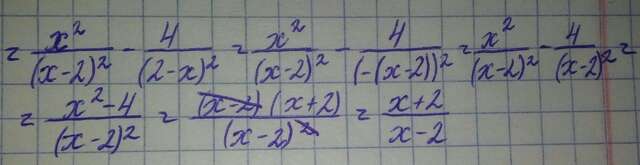 = x²/(x-2)² - 4/(2-x)² = x²/(x-2)² - 4/(-(x-2))² = x²/(x-2)² - 4/(x-2)² =
= x²-4/(x-2)² = (x-2)(x+2)/(x-2)² = x+2/x-2